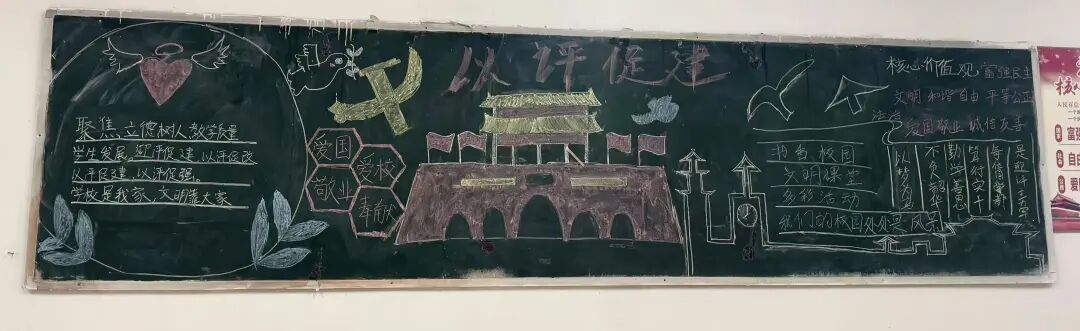 以评促建
聚焦立德树人教学质量
学生发展。迎评促建 以评促改
以评促建、以评促强。
学校是我家,文明靠大家
爱国
爱校
敬业
奉献
核心价值观 富强民主
文明 和谐自由 平等公正
法治 爱国敬业 诚信友善
书香校园
文明课堂
多彩活动
我们的校园处处是风景
以梦为
不负韶华
勤学善思
笃行实干
核心
富强
自由
爱国